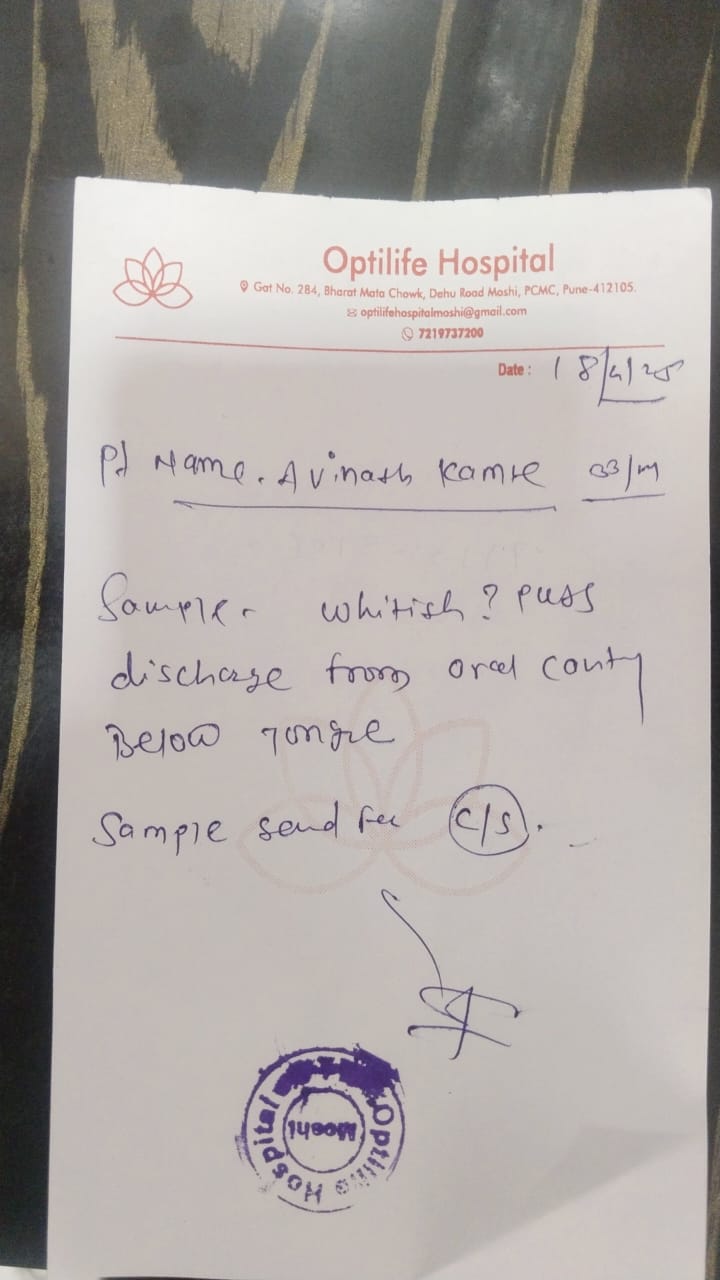 Optilife Hospital
Gat No. 284, Bharat Mata Chowk, Dehu Road Moshi, PCMC, Pune-412105.
optilifehospitalmoshi@gmail.com
7219737200
Date: 18/4/25
Pt Name. Avinash Kamle 33/M
Sample - whitish? puss
discharge from oral cavity
Below tongue
Sample send for C/S.
Optilife Hospital
Moshi